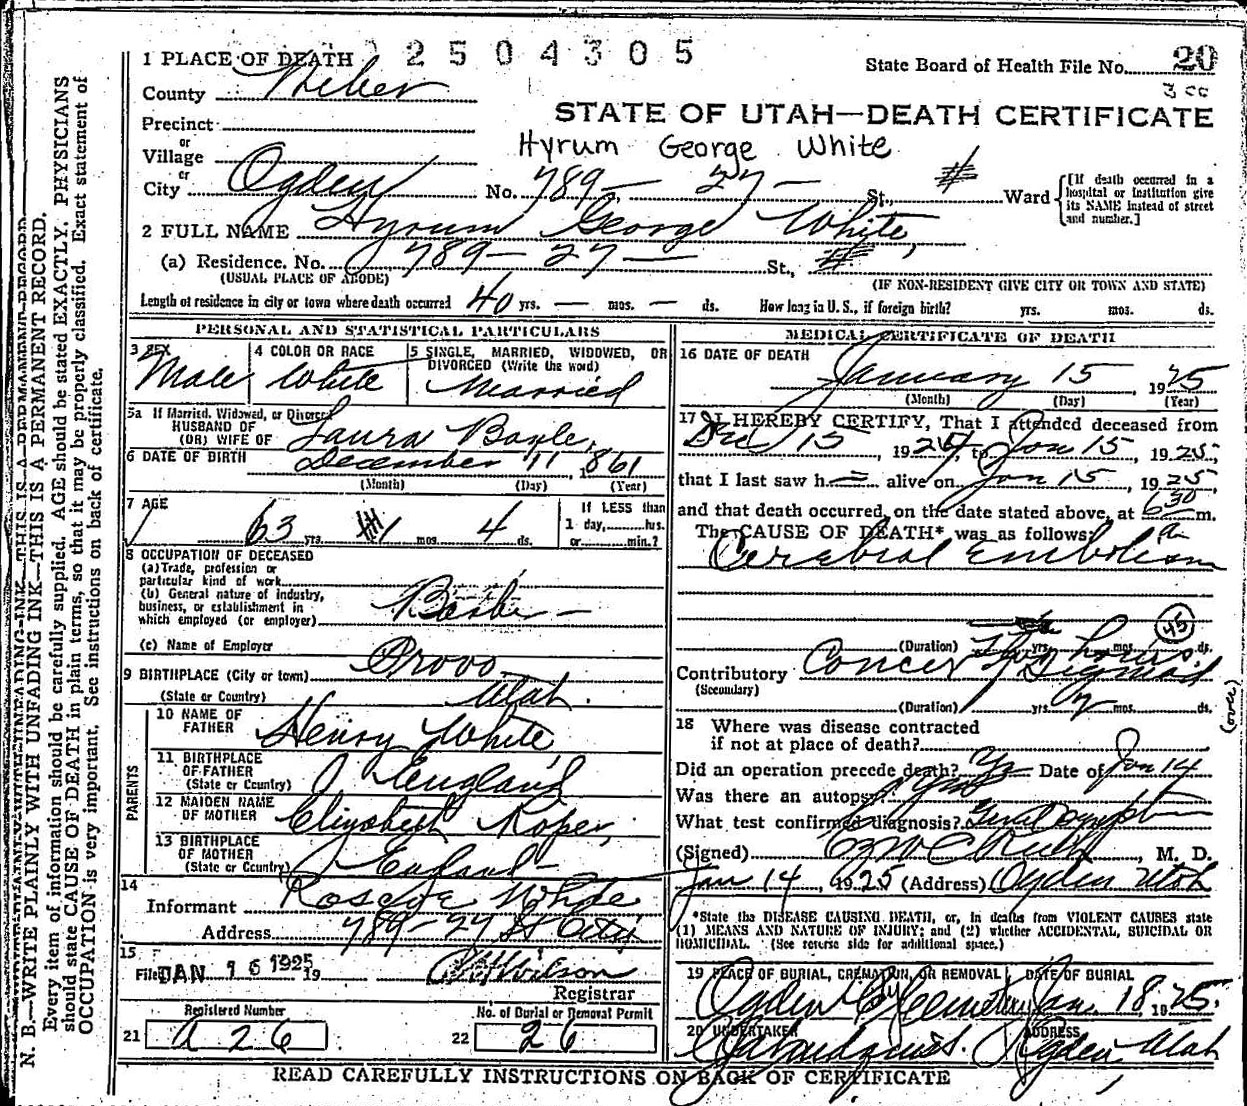 2504305
1 PLACE OF DEATH
State Board of Health File No. 20
County Weber
STATE OF UTAH—DEATH CERTIFICATE
Precinct
or
Hyrum George White
Village
or
City Ogden No. 789 — 27 — St., Ward
[If death occurred in a hospital or institution give its NAME instead of street and number.]
2 FULL NAME Hyrum George White,
(a) Residence. No. 789 — 27 — St.,
(USUAL PLACE OF ABODE) (IF NON-RESIDENT GIVE CITY OR TOWN AND STATE)
Length of residence in city or town where death occurred 40 yrs. — mos. — ds. How long in U. S., if foreign birth? yrs. mos. ds.
PERSONAL AND STATISTICAL PARTICULARS
3 SEX Male
4 COLOR OR RACE White
5 SINGLE, MARRIED, WIDOWED, OR DIVORCED (Write the word) Married
5a If Married, Widowed, or Divorced
HUSBAND OF
(OR) WIFE OF Laura Boyle,
6 DATE OF BIRTH December 11, 1861
(Month) (Day) (Year)
7 AGE 63 yrs. 1 mos. 4 ds.
If LESS than
1 day, hrs.
or min.?
8 OCCUPATION OF DECEASED
(a) Trade, profession or
particular kind of work
(b) General nature of industry,
business, or establishment in
which employed (or employer)
(c) Name of Employer
9 BIRTHPLACE (City or town) Provo
(State or Country) Utah.
PARENTS
10 NAME OF FATHER Henry White
11 BIRTHPLACE OF FATHER
(State or Country) England
12 MAIDEN NAME OF MOTHER Elizabeth Roper,
13 BIRTHPLACE OF MOTHER
(State or Country) England
14
Informant Roscoe White
Address 789-27 St City
15
Filed JAN 16 1925 19 Wilson
Registrar
Registered Number
21 a 26
No. of Burial or Removal Permit
22 26
MEDICAL CERTIFICATE OF DEATH
16 DATE OF DEATH
January 15, 1925
(Month) (Day) (Year)
17 I HEREBY CERTIFY, That I attended deceased from
Dec 15, 1924, to Jan 15, 1925,
that I last saw h alive on Jan 15, 1925,
and that death occurred, on the date stated above, at 6 30 a m.
The CAUSE OF DEATH* was as follows:
Cerebral Embolism
(Duration) yrs. mos. ds.
45
Contributory Cancer of Sigmoid
(Secondary)
(over)
(Duration) yrs. mos. ds.
18 Where was disease contracted
if not at place of death?
Did an operation precede death? Yes Date of Jan 14
Was there an autopsy?
What test confirmed diagnosis?
(Signed) , M. D.
Jan 14, 1925 (Address) Ogden Utah
*State the DISEASE CAUSING DEATH, or, in deaths from VIOLENT CAUSES state
(1) MEANS AND NATURE OF INJURY; and (2) whether ACCIDENTAL, SUICIDAL OR
HOMICIDAL. (See reverse side for additional space.)
19 PLACE OF BURIAL, CREMATION, OR REMOVAL
Ogden City Cemetery
DATE OF BURIAL
Jan. 18, 1925.
20 UNDERTAKER
ADDRESS
Ogden, Utah
READ CAREFULLY INSTRUCTIONS ON BACK OF CERTIFICATE
N. B.—WRITE PLAINLY WITH UNFADING INK—THIS IS A PERMANENT RECORD.
Every item of information should be carefully supplied. AGE should be stated EXACTLY. PHYSICIANS
should state CAUSE OF DEATH in plain terms, so that it may be properly classified. Exact statement of
OCCUPATION is very important. See instructions on back of certificate.